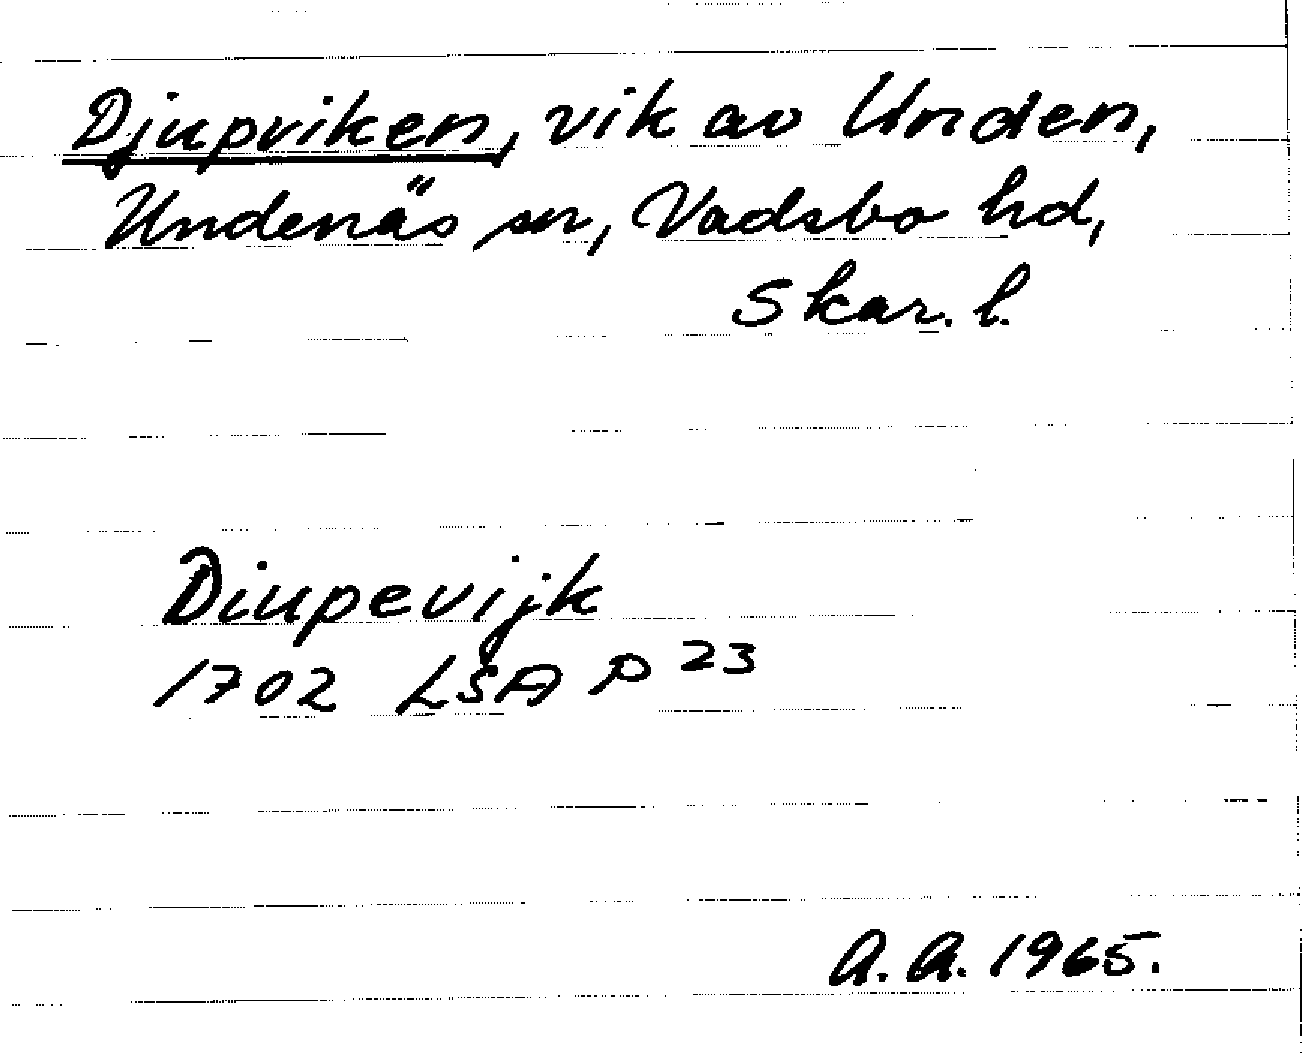 Djupviken, vik av Unden,
Undenäs sn, Vadsbo hd,
Skar. l.
Diupevijk
1702 LSA P 23
A. A. 1965.